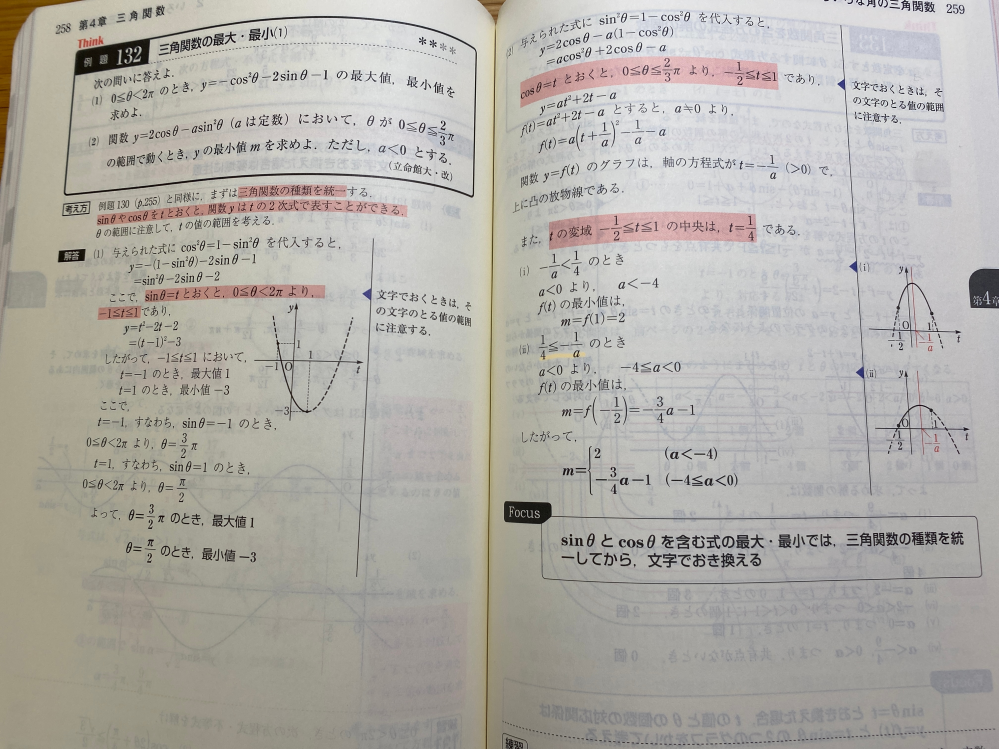 258 第4章 三角関数
Think
例題 132 三角関数の最大・最小(1) ****
次の問いに答えよ.
(1) 0≦θ<2π のとき, y=−cos²θ−2sinθ−1 の最大値, 最小値を
求めよ.
(2) 関数 y=2cosθ−asin²θ (a は定数) において, θ が 0≦θ≦2/3π
の範囲で動くとき, y の最小値 m を求めよ. ただし, a<0 とする.
(立命館大・改)
考え方 例題130 (p.255) と同様に, まずは三角関数の種類を統一する.
sinθ や cosθ を t とおくと, 関数 y は t の2次式で表すことができる.
θ の範囲に注意して, t の値の範囲を考える.
解答 (1) 与えられた式に cos²θ=1−sin²θ を代入すると,
y=−(1−sin²θ)−2sinθ−1
=sin²θ−2sinθ−2
ここで, sinθ=t とおくと, 0≦θ<2π より,
−1≦t≦1 であり,
y=t²−2t−2
=(t−1)²−3
したがって, −1≦t≦1 において,
t=−1 のとき, 最大値 1
t=1 のとき, 最小値 −3
ここで,
t=−1, すなわち, sinθ=−1 のとき,
0≦θ<2π より, θ=3/2π
t=1, すなわち, sinθ=1 のとき,
0≦θ<2π より, θ=π/2
よって, θ=3/2π のとき, 最大値 1
θ=π/2 のとき, 最小値 −3
文字でおくときは, そ
の文字のとる値の範囲
に注意する.
y
1
−1
O
1
t
−3
な角の三角関数 259
(2) 与えられた式に sin²θ=1−cos²θ を代入すると,
y=2cosθ−a(1−cos²θ)
=acos²θ+2cosθ−a
cosθ=t とおくと, 0≦θ≦2/3π より, −1/2≦t≦1 であり,
y=at²+2t−a
f(t)=at²+2t−a とすると, a≠0 より,
f(t)=a(t+1/a)²−1/a−a
関数 y=f(t) のグラフは, 軸の方程式が t=−1/a (>0) で,
上に凸の放物線である.
また, t の変域 −1/2≦t≦1 の中央は, t=1/4 である.
(i) −1/a<1/4 のとき
a<0 より, a<−4
f(t) の最小値は,
m=f(1)=2
(ii) 1/4≦−1/a のとき
a<0 より, −4≦a<0
f(t) の最小値は,
m=f(−1/2)=−3/4a−1
したがって,
m={2 (a<−4)
−3/4a−1 (−4≦a<0)
文字でおくときは, そ
の文字のとる値の範囲
に注意する.
(i)
y
O
1
t
−1/2
−1/a
(ii)
y
O
1
t
−1/2
−1/a
第4章
Focus
sinθ と cosθ を含む式の最大・最小では, 三角関数の種類を統
一してから, 文字でおき換える
練習